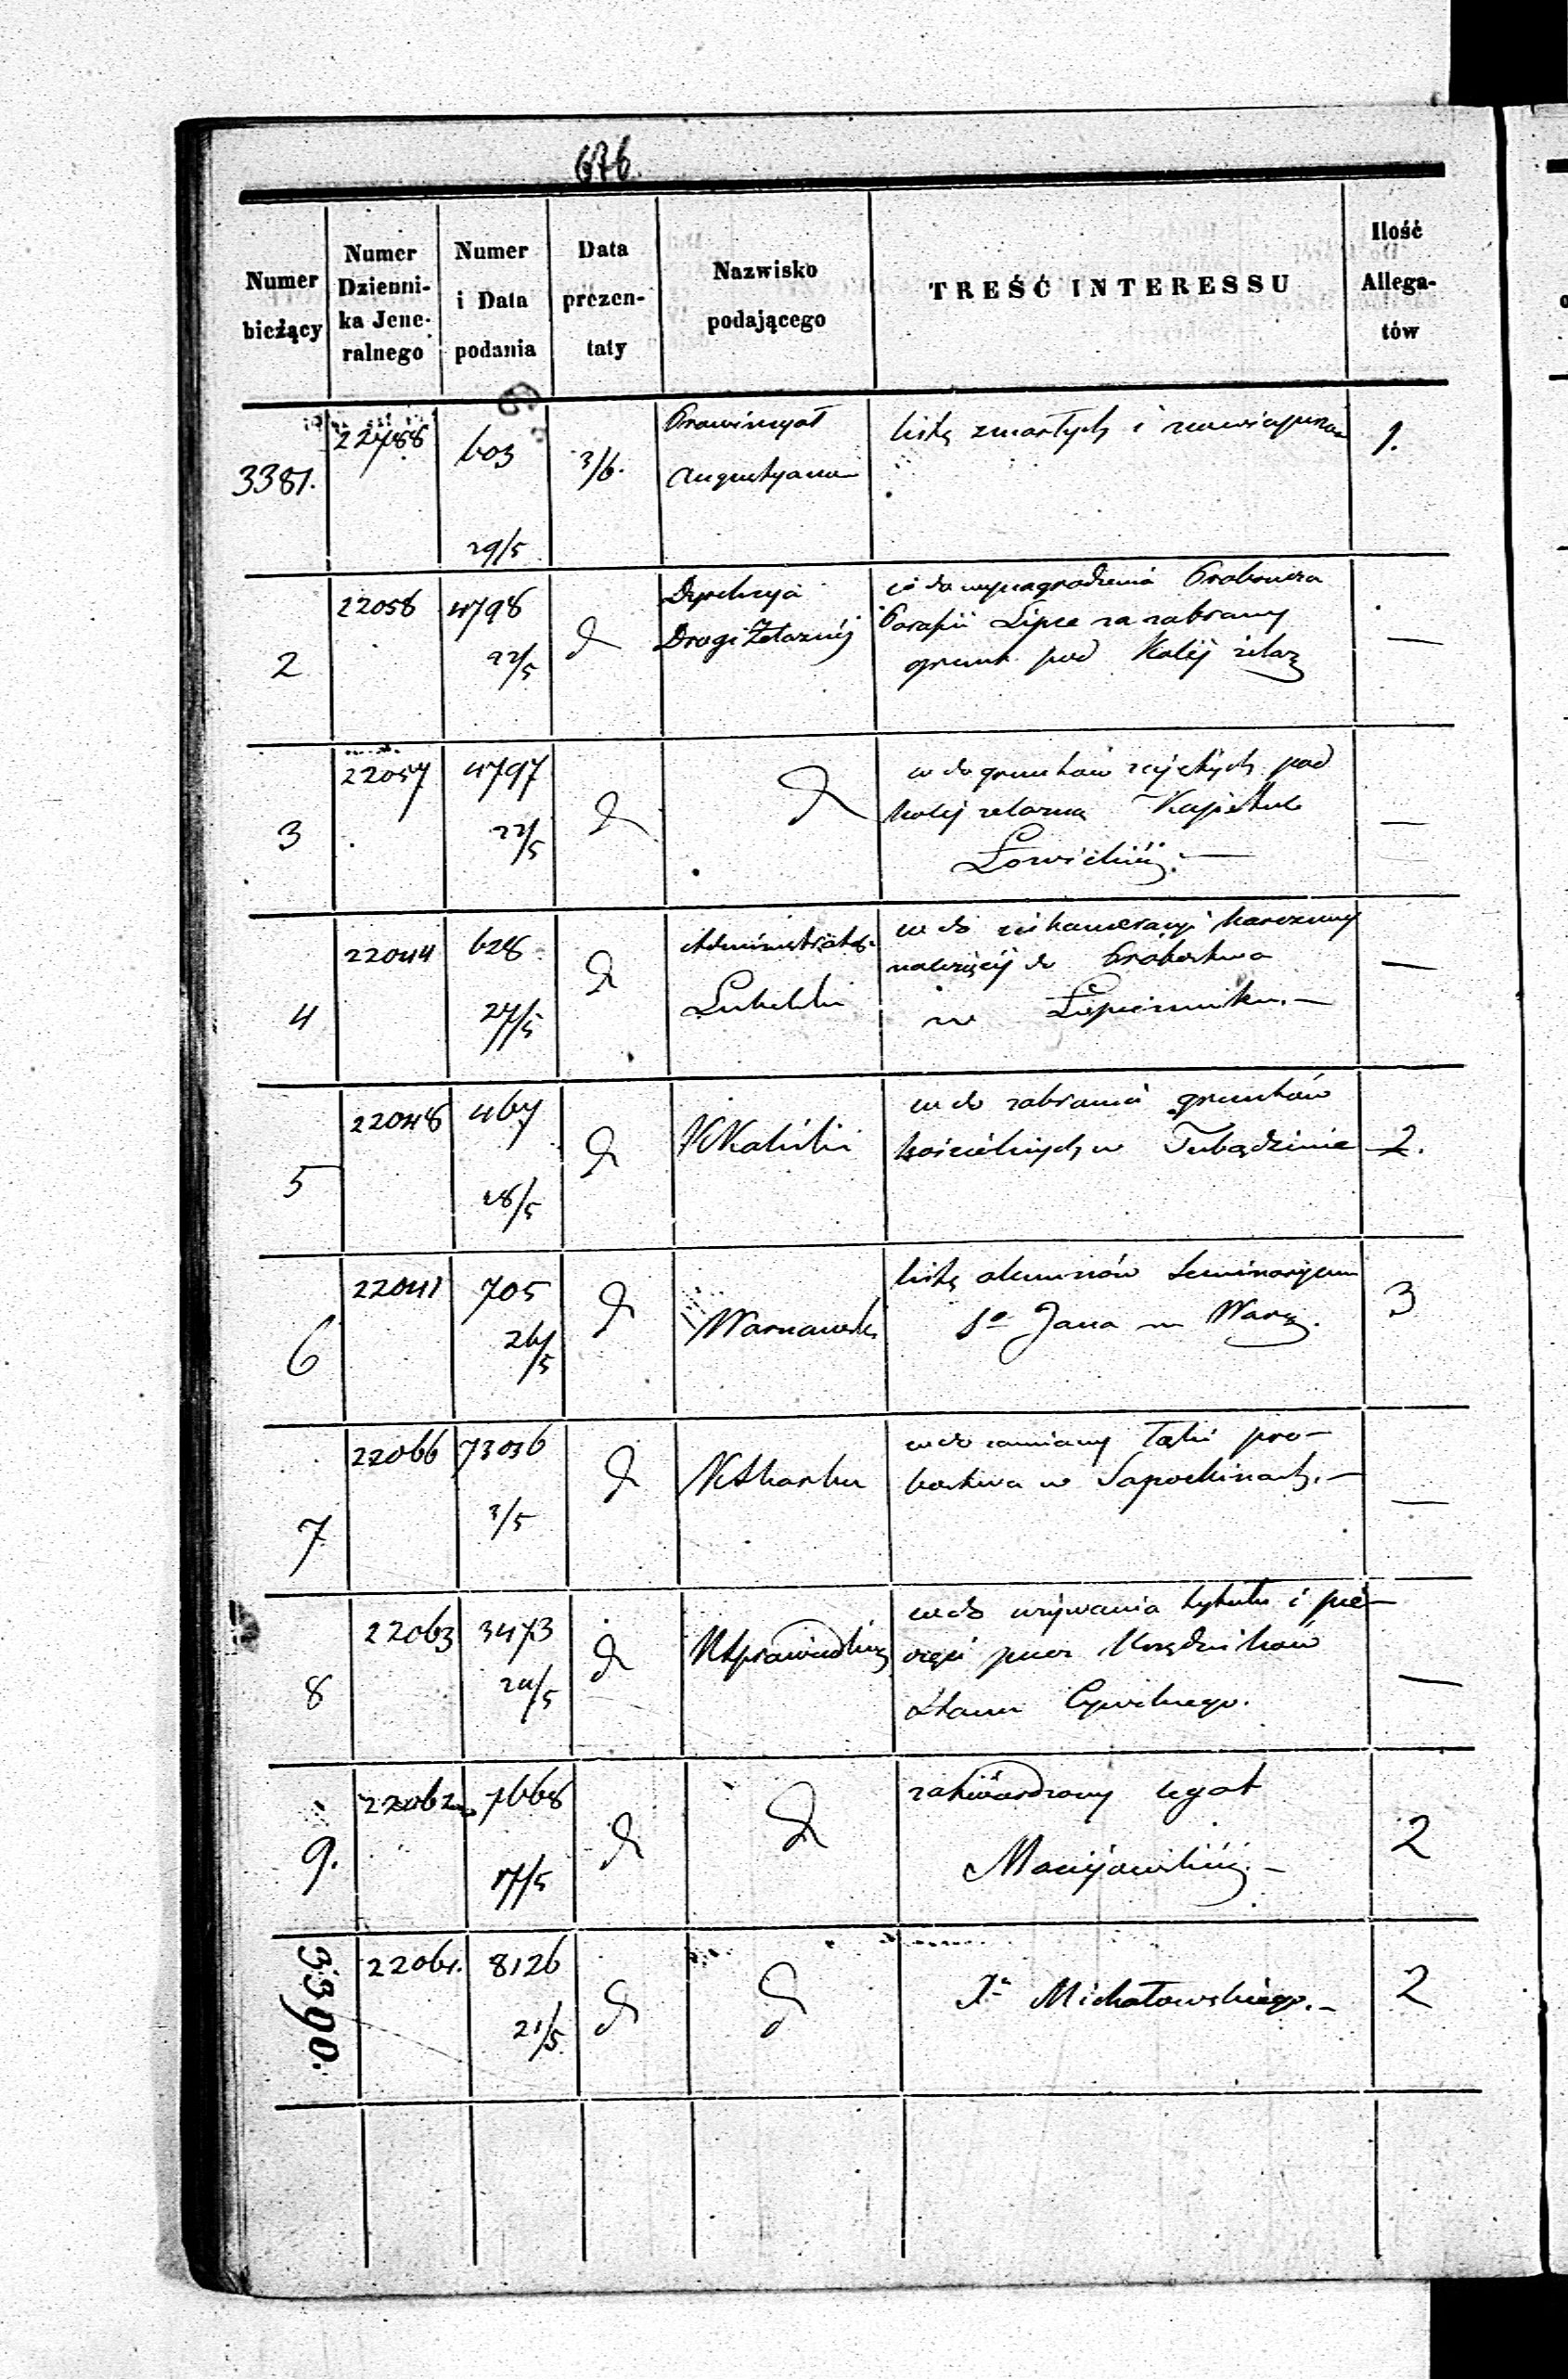 676.
Numer bieżący
Numer Dzienni-ka Jene-ralnego
Numer i Data podania
Data prezen-taty
Nazwisko podającego
TREŚĆ INTERESSU
Ilość Allega-tów
3381.
22488
603
29/5
3/6.
Prowincyał
Augustyanów
listę zmarłych i
1.
2
22058
4798
22/5
Dyrekcya
Drogi Żelaznéj
co do wynagrodzenia Proboszcza
Parafii Lipce za zabrany
grunt pod Koléj żelaz
—
3
22057
4797
22/5
co do gruntów zajętych pod
koléj zelazną Kapitule
Łowickiéj. —
—
4
22044
628
27/5
Administrator
Lubelski
co do karczmy
należącéj do Probostwa
w —
—
5
22048
467
18/5
KKaliski
co do zabrania gruntów
kościelnych w Tubądzinie
2.
6
22041
705
26/5
Warszawski
listę alumnów Seminaryum
So Jana w Warsz.
3
7
22066
73036
3/5
KSkarbu
co do zamiany łąki pro-
bostwa w Sapockinach. —
—
8
22063
3473
24/5
KSprawiedliw
co do używania tytułu i pie-
częci przez Urzędników
Stanu Cywilnego.
—
9.
22062
7668
17/5
zatwierdzony legat
Maciejowskiéj. —
2
3390.
22061.
8126
21/5
Michałowskiego. —
2